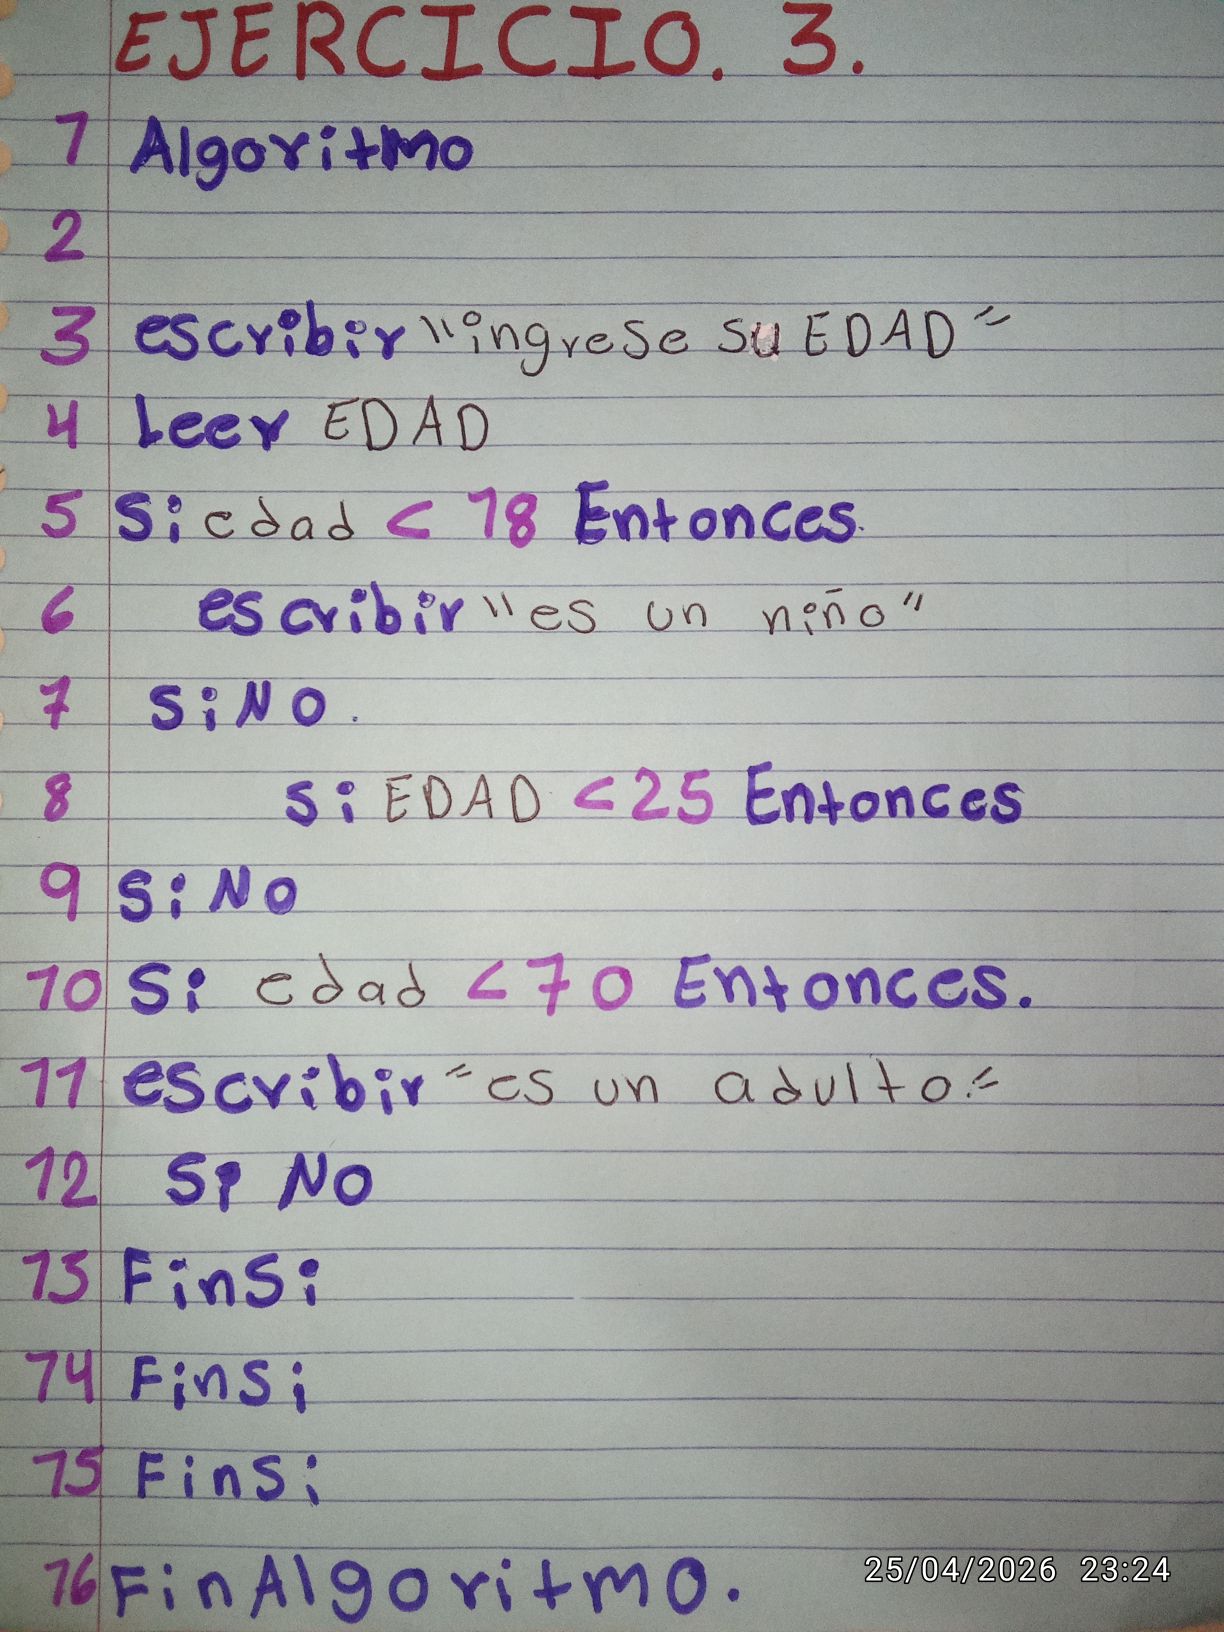 EJERCICIO. 3.
1 Algoritmo
2
3 escribir "ingrese su EDAD"
4 Leer EDAD
5 Si edad < 18 Entonces.
6 escribir "es un niño"
7 SiNO.
8 Si EDAD <25 Entonces
9 SiNO
10 Si edad <70 Entonces.
11 escribir "es un adulto."
12 Si NO
13 FinSi
14 FinSi
15 FinSi
16 FinAlgoritmo.
25/04/2026 23:24